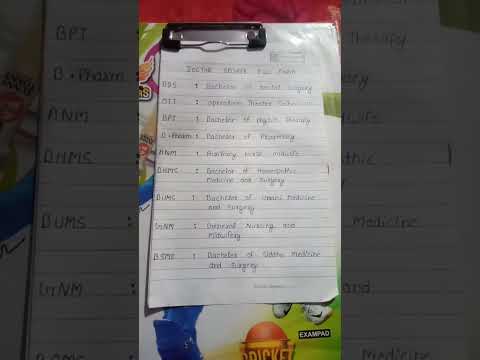 DOCTOR DEGREE FULL FORM
BDS : Bachelor of Dental Surgery
OTT : Operation Theater Technician
BPT : Bachelor of physio therapy
B.Pharm : Bachelor of Pharmacy
ANM : Auxiliary Nurse Midwife
BHMS : Bachelor of Homeopathic
Medicine and Surgery
BUMS : Bachelor of Unani Medicine
and Surgery
GNM : General Nursing and
Midwifery
BSMS : Bachelor of Siddha Medicine
and Surgery
EXAMPAD
CRICKET
BPT
B.Pharm
ANM
BHMS :
BUMS :
GNM :
Therapy
thic
Medicine
and